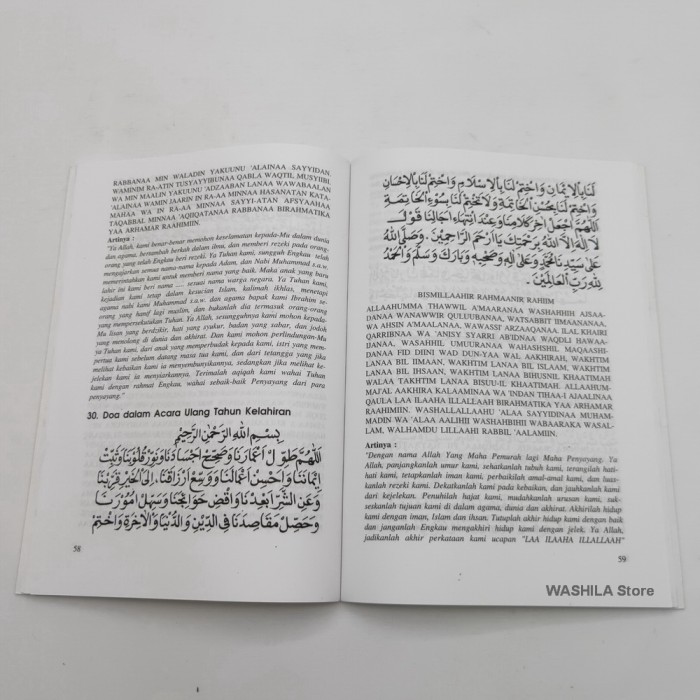 RABBANAA MIN WALADIN YAKUUNU 'ALAINAA SAYYIDAN
WAMINIM RA-ATIN TUSYAYYIBUNAA QABLA WAQTIL MUSYIIBI
WA MIN MAALIN YAKUUNU 'ADZAABAN LANAA WAWABAALAN
'ALAINAA WAMIN JAARIN IN RA-AA MINNAA HASANATAN KATA-
MAHAA WA IN RA-AA MINNAA SAYYI-ATAN AFSYAAHAA
TAQABBAL MINNAA 'AQIIQATANAA RABBANAA BIRAHMATIKA
YAA ARHAMAR RAAHIMIIN.
Artinya :
"Ya Allah, kami benar-benar memohon keselamatan kepada-Mu dalam dunia
dan agama, bertambah berkah dalam ilmu, dan memberi rezeki pada orang-
orang yang telah Engkau beri rezeki. Ya Tuhan kami, sungguh Engkau telah
mengajarkan semua nama-nama kepada Adam, dan Nabi Muhammad s.a.w.
memerintahkan kami untuk memberi nama yang baik. Maka anak yang baru
lahir ini kami beri nama .... sesuai nama warga negara. Ya Tuhan kami,
kejadian kami tetap dalam kesucian Islam, kalimah ikhlas, menetapi
agama nabi kami Muhammad s.a.w. dan agama bapak kami Ibrahim se-
orang yang hanif lagi muslim, dan bukanlah dia termasuk orang-orang
yang mempersekutukan Tuhan. Ya Allah, sesungguhnya kami mohon kepada-
Mu lisan yang berdzikir, hati yang syukur, badan yang sabar, dan jodoh
yang menolong di dunia dan akhirat. Dan kami mohon perlindungan-Mu
ya Tuhan kami, dari anak yang memperbudak kepada kami, istri yang mem-
buat kami tua sebelum datang masa tua kami, dan dari tetangga yang jika
melihat kebaikan kami ia menyembunyikannya, sedangkan jika melihat ke-
jelekan kami ia menyiarkannya. Terimalah aqiqah kami wahai Tuhan
kami dengan rahmat Engkau, wahai sebaik-baik Penyayang dari para
penyayang."
30. Doa dalam Acara Ulang Tahun Kelahiran
بِسْمِ اللهِ الرَّحْمٰنِ الرَّحِيْمِ
اَللّٰهُمَّ طَوِّلْ اَعْمَارَنَا وَصَحِّحْ اَجْسَادَنَا وَنَوِّرْ قُلُوْبَنَا وَثَبِّتْ
اِيْمَانَنَا وَاَحْسِنْ اَعْمَالَنَا وَوَسِّعْ اَرْزَاقَنَا، اِلَى الْخَيْرِ قَرِّبْنَا
وَعَنِ الشَّرِّ اَبْعِدْنَا وَاقْضِ حَوَائِجَنَا وَسَهِّلْ اُمُوْرَنَا
وَحَصِّلْ مَقَاصِدَنَا فِى الدِّيْنِ وَالدُّنْيَا وَالْاٰخِرَةِ وَاخْتِمْ
58
لَنَا بِالْاِيْمَانِ وَاخْتِمْ لَنَا بِالْاِسْلَامِ وَاخْتِمْ لَنَا بِالْاِحْسَانِ
وَاخْتِمْ لَنَا بِحُسْنِ الْخَاتِمَةِ وَلَا تَخْتِمْ لَنَا بِسُوْءِ الْخَاتِمَةِ
اَللّٰهُمَّ اجْعَلْ اٰخِرَ كَلَامِنَا وَعِنْدَ انْتِهَاءِ اٰجَالِنَا قَوْلَ
لَا اِلٰهَ اِلَّا اللهُ بِرَحْمَتِكَ يَا اَرْحَمَ الرَّاحِمِيْنَ. وَصَلَّى اللهُ
عَلٰى سَيِّدِنَا مُحَمَّدٍ وَعَلٰى اٰلِهِ وَصَحْبِهِ وَبَارَكَ وَسَلَّمَ وَالْحَمْدُ
لِلّٰهِ رَبِّ الْعَالَمِيْنَ.
BISMILLAAHIR RAHMAANIR RAHIIM
ALLAAHUMMA THAWWIL A'MAARANAA WASHAHHIH AJSAA-
DANAA WANAWWIR QULUUBANAA, WATSABBIT IIMAANANAA,
WA AHSIN A'MAALANAA, WAWASSI' ARZAAQANAA. ILAL KHAIRI
QARRIBNAA WA 'ANISY SYARRI AB'IDNAA WAQDLI HAWAA-
IJANAA, WASAHHIL UMUURANAA WAHASHSHIL MAQAASHI-
DANAA FID DIINI WAD DUN-YAA WAL AAKHIRAH, WAKHTIM
LANAA BIL IIMAAN, WAKHTIM LANAA BIL ISLAAM, WAKHTIM
LANAA BIL IHSAAN, WAKHTIM LANAA BIHUSNIL KHAATIMAH
WALAA TAKHTIM LANAA BISUU-IL KHAATIMAH. ALLAAHUM-
MAJ'AL AAKHIRA KALAAMINAA WA 'INDAN TIHAA-I AJAALINAA
QAULA LAA ILAAHA ILLALLAAH BIRAHMATIKA YAA ARHAMAR
RAAHIMIIN. WASHALLALLAAHU 'ALAA SAYYIDINAA MUHAM-
MADIN WA 'ALAA AALIHII WASHAHBIHII WABAARAKA WASAL-
LAM, WALHAMDU LILLAAHI RABBIL 'AALAMIIN.
Artinya :
"Dengan nama Allah Yang Maha Pemurah lagi Maha Penyayang. Ya
Allah, panjangkanlah umur kami, sehatkanlah tubuh kami, terangilah hati-
hati kami, tetapkanlah iman kami, perbaikilah amal-amal kami, dan luas-
kanlah rezeki kami. Dekatkanlah kami pada kebaikan, dan jauhkanlah kami
dari kejelekan. Penuhilah hajat kami, mudahkanlah urusan kami, suk-
seskanlah tujuan kami di dalam agama, dunia dan akhirat. Akhirilah hidup
kami dengan iman, Islam dan ihsan. Tutuplah akhir hidup kami dengan baik
dan janganlah Engkau mengakhiri hidup kami dengan jelek. Ya Allah,
jadikanlah akhir perkataan kami ucapan "LAA ILAAHA ILLALLAAH"
59
WASHILA Store